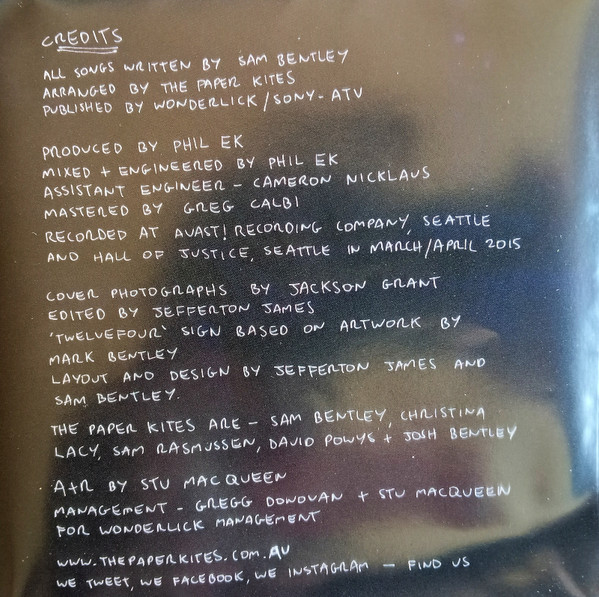 CREDITS
ALL SONGS WRITTEN BY SAM BENTLEY
ARRANGED BY THE PAPER KITES
PUBLISHED BY WONDERLICK / SONY-ATV
PRODUCED BY PHIL EK
MIXED + ENGINEERED BY PHIL EK
ASSISTANT ENGINEER - CAMERON NICKLAUS
MASTERED BY GREG CALBI
RECORDED AT AVAST! RECORDING COMPANY, SEATTLE
AND HALL OF JUSTICE, SEATTLE IN MARCH/APRIL 2015
COVER PHOTOGRAPHS BY JACKSON GRANT
EDITED BY JEFFERTON JAMES
'TWELVEFOUR' SIGN BASED ON ARTWORK BY
MARK BENTLEY
LAYOUT AND DESIGN BY JEFFERTON JAMES AND
SAM BENTLEY.
THE PAPER KITES ARE - SAM BENTLEY, CHRISTINA
LACY, SAM RASMUSSEN, DAVID POWYS + JOSH BENTLEY
A+R BY STU MACQUEEN
MANAGEMENT - GREGG DONOVAN + STU MACQUEEN
FOR WONDERLICK MANAGEMENT
WWW.THEPAPERKITES.COM.AU
WE TWEET, WE FACEBOOK, WE INSTAGRAM - FIND US